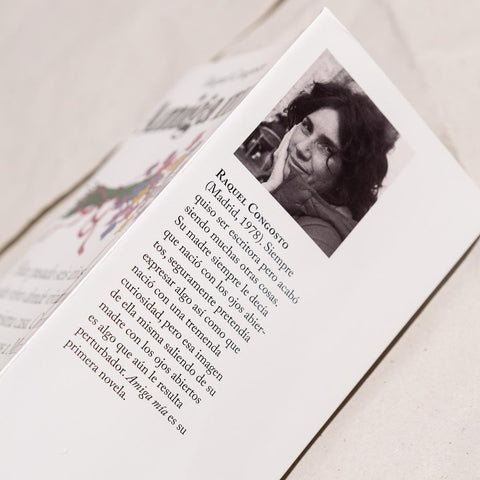 RAQUEL CONGOSTO
(Madrid, 1978). Siempre
quiso ser escritora pero acabó
siendo muchas otras cosas.
Su madre siempre le decía
que nació con los ojos abier-
tos, seguramente pretendía
expresar algo así como que
nació con una tremenda
curiosidad, pero esa imagen
de ella misma saliendo de su
madre con los ojos abiertos
es algo que aún le resulta
perturbador. Amiga mía es su
primera novela.